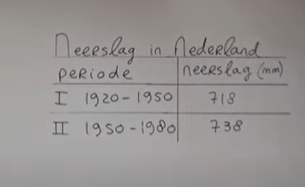 Neerslag in Nederland
periode neerslag (mm)
I 1920-1950 718
II 1950-1980 738